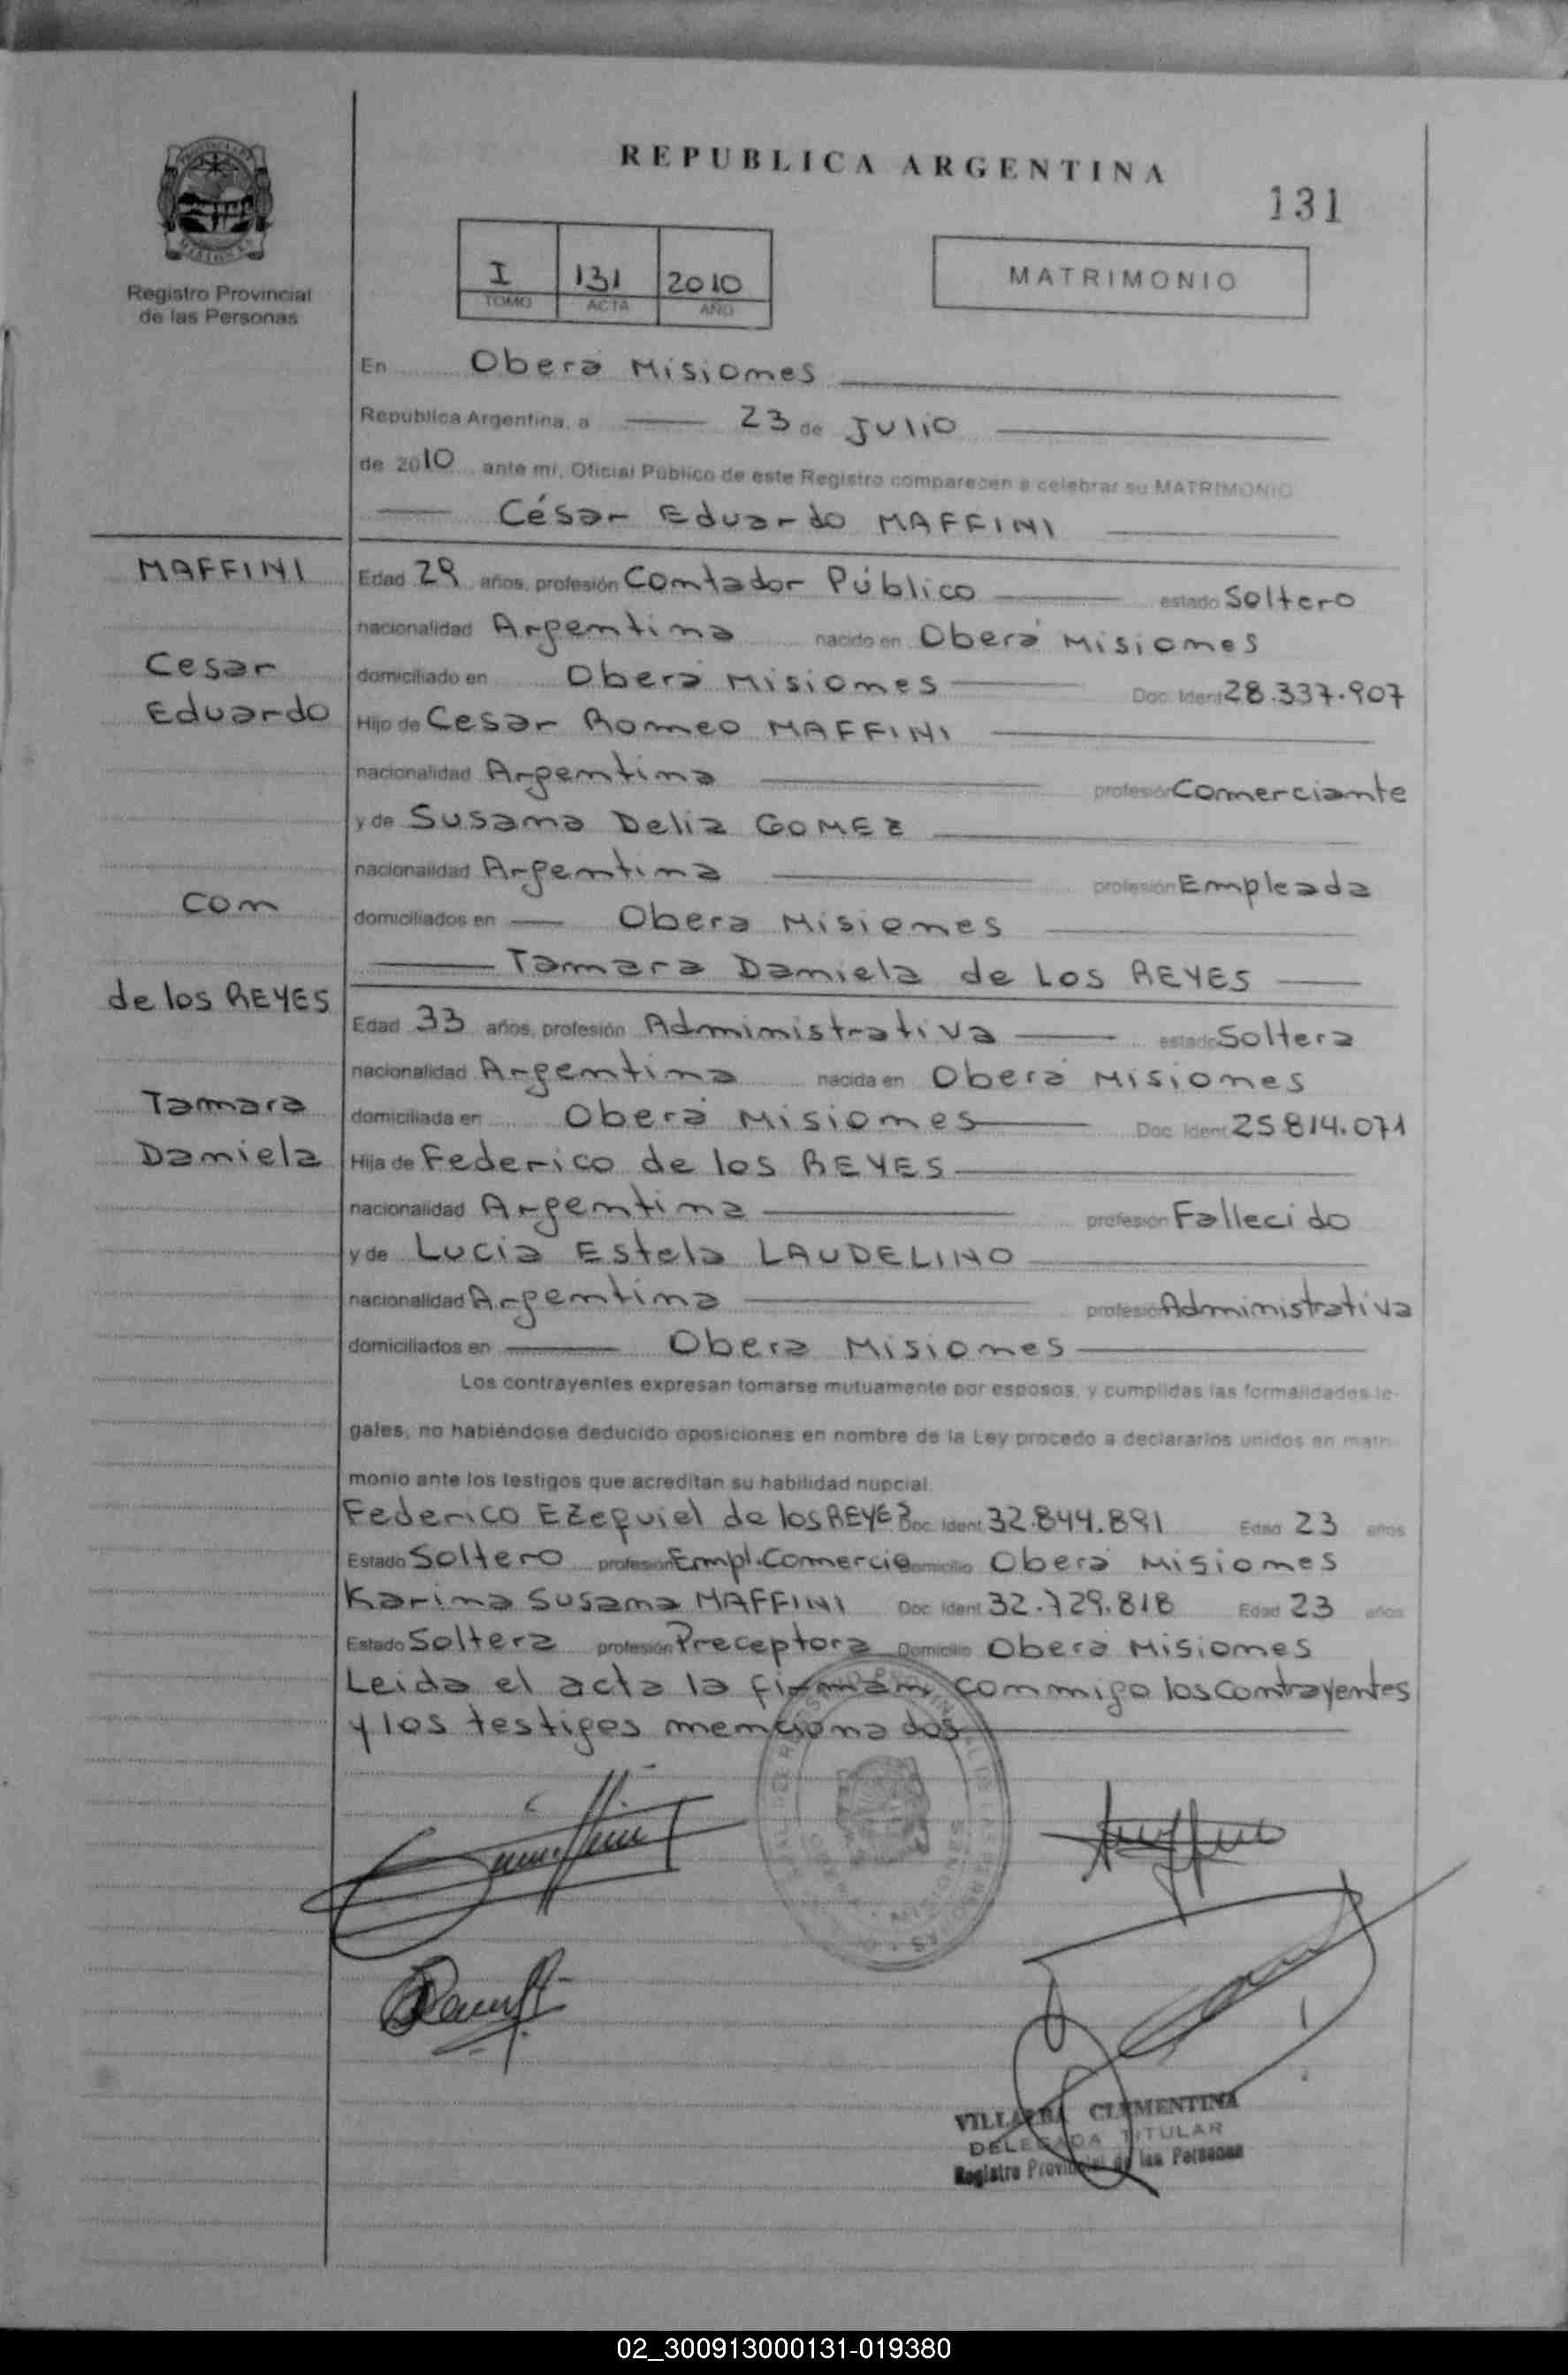 REPUBLICA ARGENTINA
131
Registro Provincial
de las Personas
I 131 2010
TOMO ACTA AÑO
MATRIMONIO
En Oberá Misiones
Republica Argentina, a 23 de Julio
de 2010 ante mi, Oficial Público de este Registro comparecen a celebrar su MATRIMONIO
César Eduardo MAFFINI
MAFFINI
Edad 29 años, profesión Contador Público estado Soltero
nacionalidad Argentina nacido en Oberá Misiones
Cesar
domiciliado en Oberá Misiones Doc. Ident 28.337.907
Eduardo
Hijo de Cesar Romeo MAFFINI
nacionalidad Argentina profesión Comerciante
y de Susana Delia GOMEZ
nacionalidad Argentina profesión Empleada
con
domiciliados en Obera Misiones
Tamara Daniela de Los REYES
de los REYES
Edad 33 años, profesión Administrativa estado Soltera
nacionalidad Argentina nacida en Oberá Misiones
Tamara
domiciliada en Oberá Misiones Doc. Ident 25.814.071
Daniela
Hija de Federico de los REYES
nacionalidad Argentina profesión Fallecido
y de Lucia Estela LAUDELINO
nacionalidad Argentina profesión Administrativa
domiciliados en Obera Misiones
Los contrayentes expresan tomarse mutuamente por esposos, y cumplidas las formalidades le-
gales, no habiéndose deducido oposiciones en nombre de la Ley procedo a declararlos unidos en matri-
monio ante los testigos que acreditan su habilidad nupcial.
Federico Ezequiel de los REYES Doc. Ident 32.844.891 Edad 23 años
Estado Soltero profesión Empl.Comercio Domicilio Oberá Misiones
Karina Susana MAFFINI Doc. Ident 32.729.818 Edad 23 años
Estado Soltera profesión Preceptora Domicilio Oberá Misiones
Leida el acta la firman conmigo los contrayentes
y los testigos mencionados
VILLALBA CLEMENTINA
DELEGADA TITULAR
Registro Provincial de las Personas
02_300913000131-019380